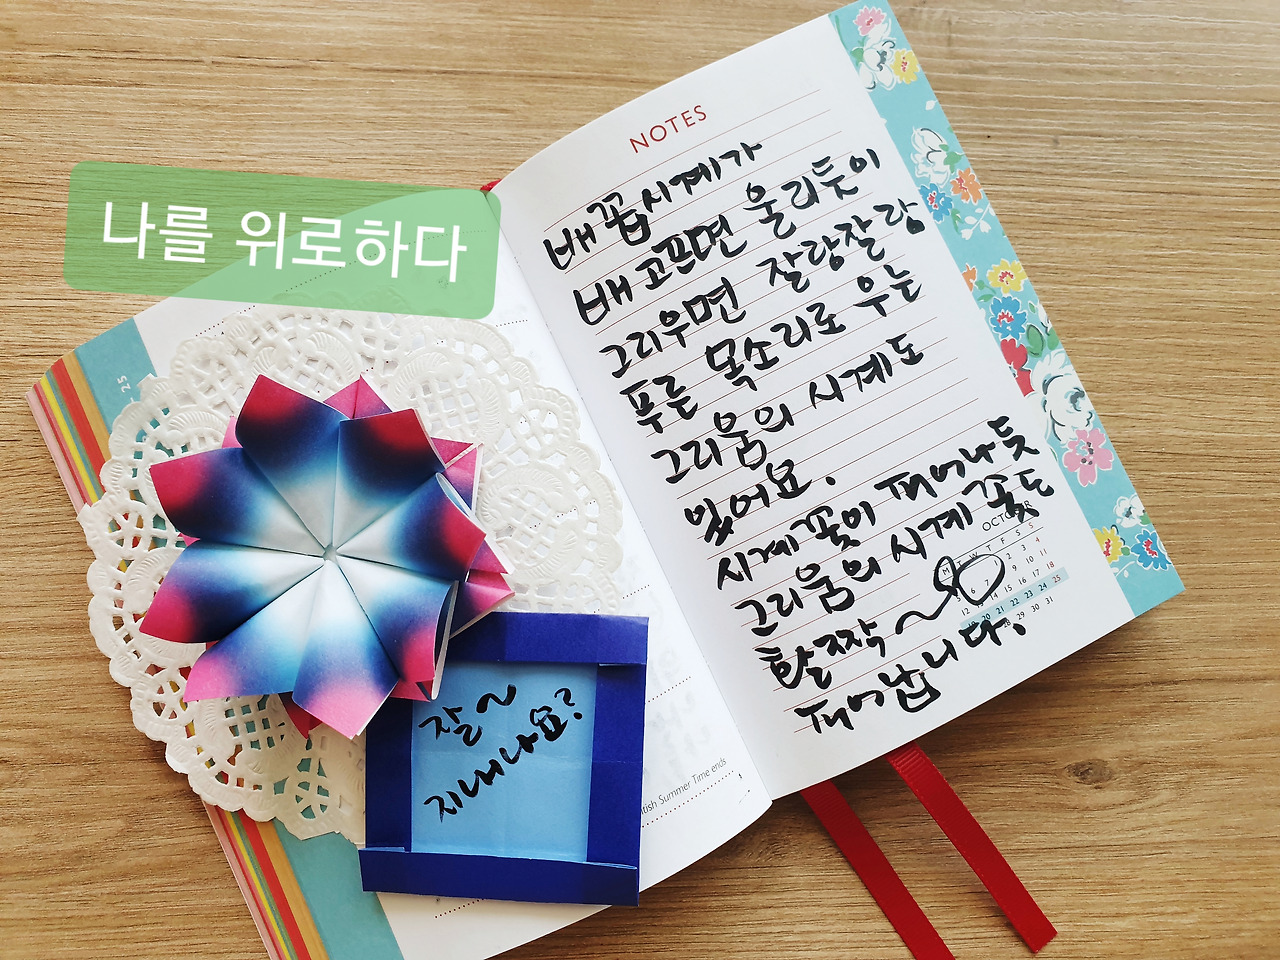 나를 위로하다
NOTES
배꼽시계가
배고프면 울리듯이
그리우면 잘랑잘랑
푸른 목소리로 우는
그리움의 시계도
있어요.
시계꽃이 피어나듯
그리움의 시계꽃도
활짝~
피어납니다.
잘~
지내나요?
25
British Summer Time ends
OCTOBER
M T W T F S S